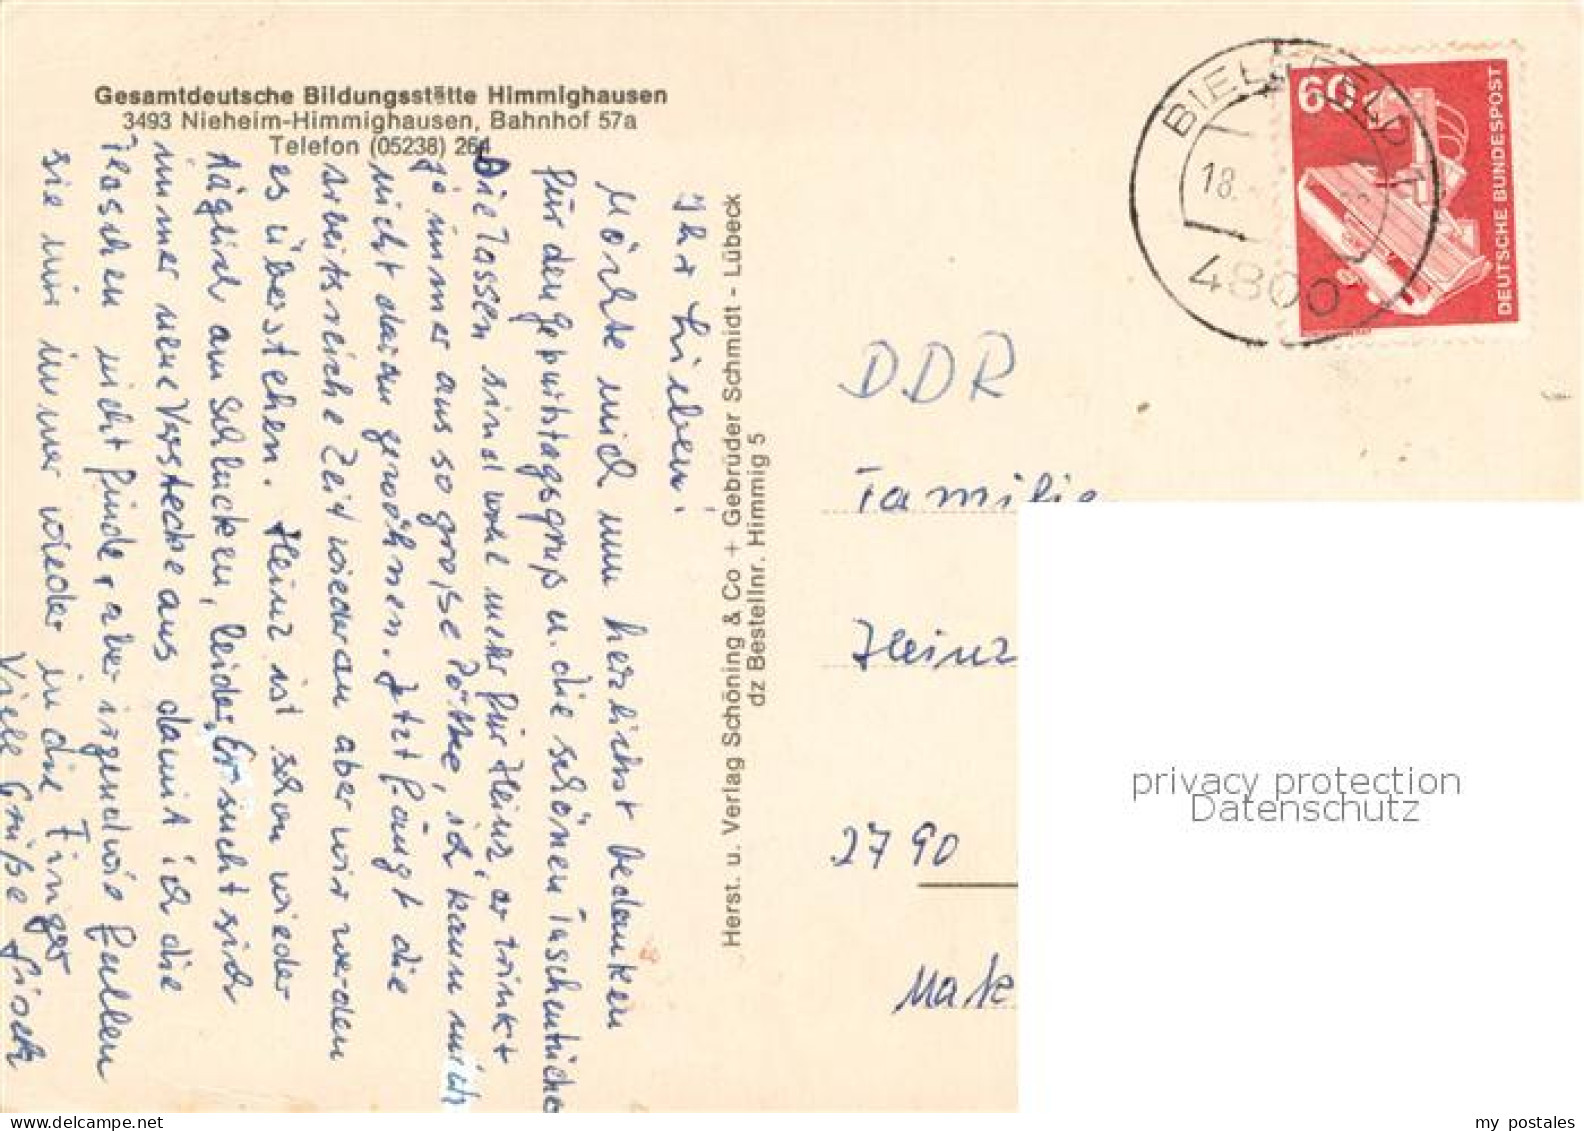 Gesamtdeutsche Bildungsstätte Himmighausen
3493 Nieheim-Himmighausen, Bahnhof 57a
Telefon (05238) 264
Ihr Lieben!
Möchte mich nun herzlichst bedanken
für den geburtstagsgruß u. die schönen Taschentücher
Die Tassen sind wohl mehr für Heinz, er trinkt
ja immer aus so große Pötte, ich kann mich
nicht daran gewöhnen. Jetzt fängt die
arbeitsreiche Zeit wieder an aber wir werden
es überstehen. Heinz ist schon wieder
täglich am Schlucken, leider. Er sucht sich
immer neue Verstecke aus damit ich die
Flaschen nicht finde, aber irgendwie fallen
sie mir immer wieder in die Finger
Viele Grüße
Herst. u. Verlag Schöning & Co + Gebrüder Schmidt - Lübeck
dz Bestellnr. Himmig 5
BIELEFELD 1
18.
4800
60
DEUTSCHE BUNDESPOST
DDR
Familie
Heinz
2790
privacy protection
Datenschutz
my postales